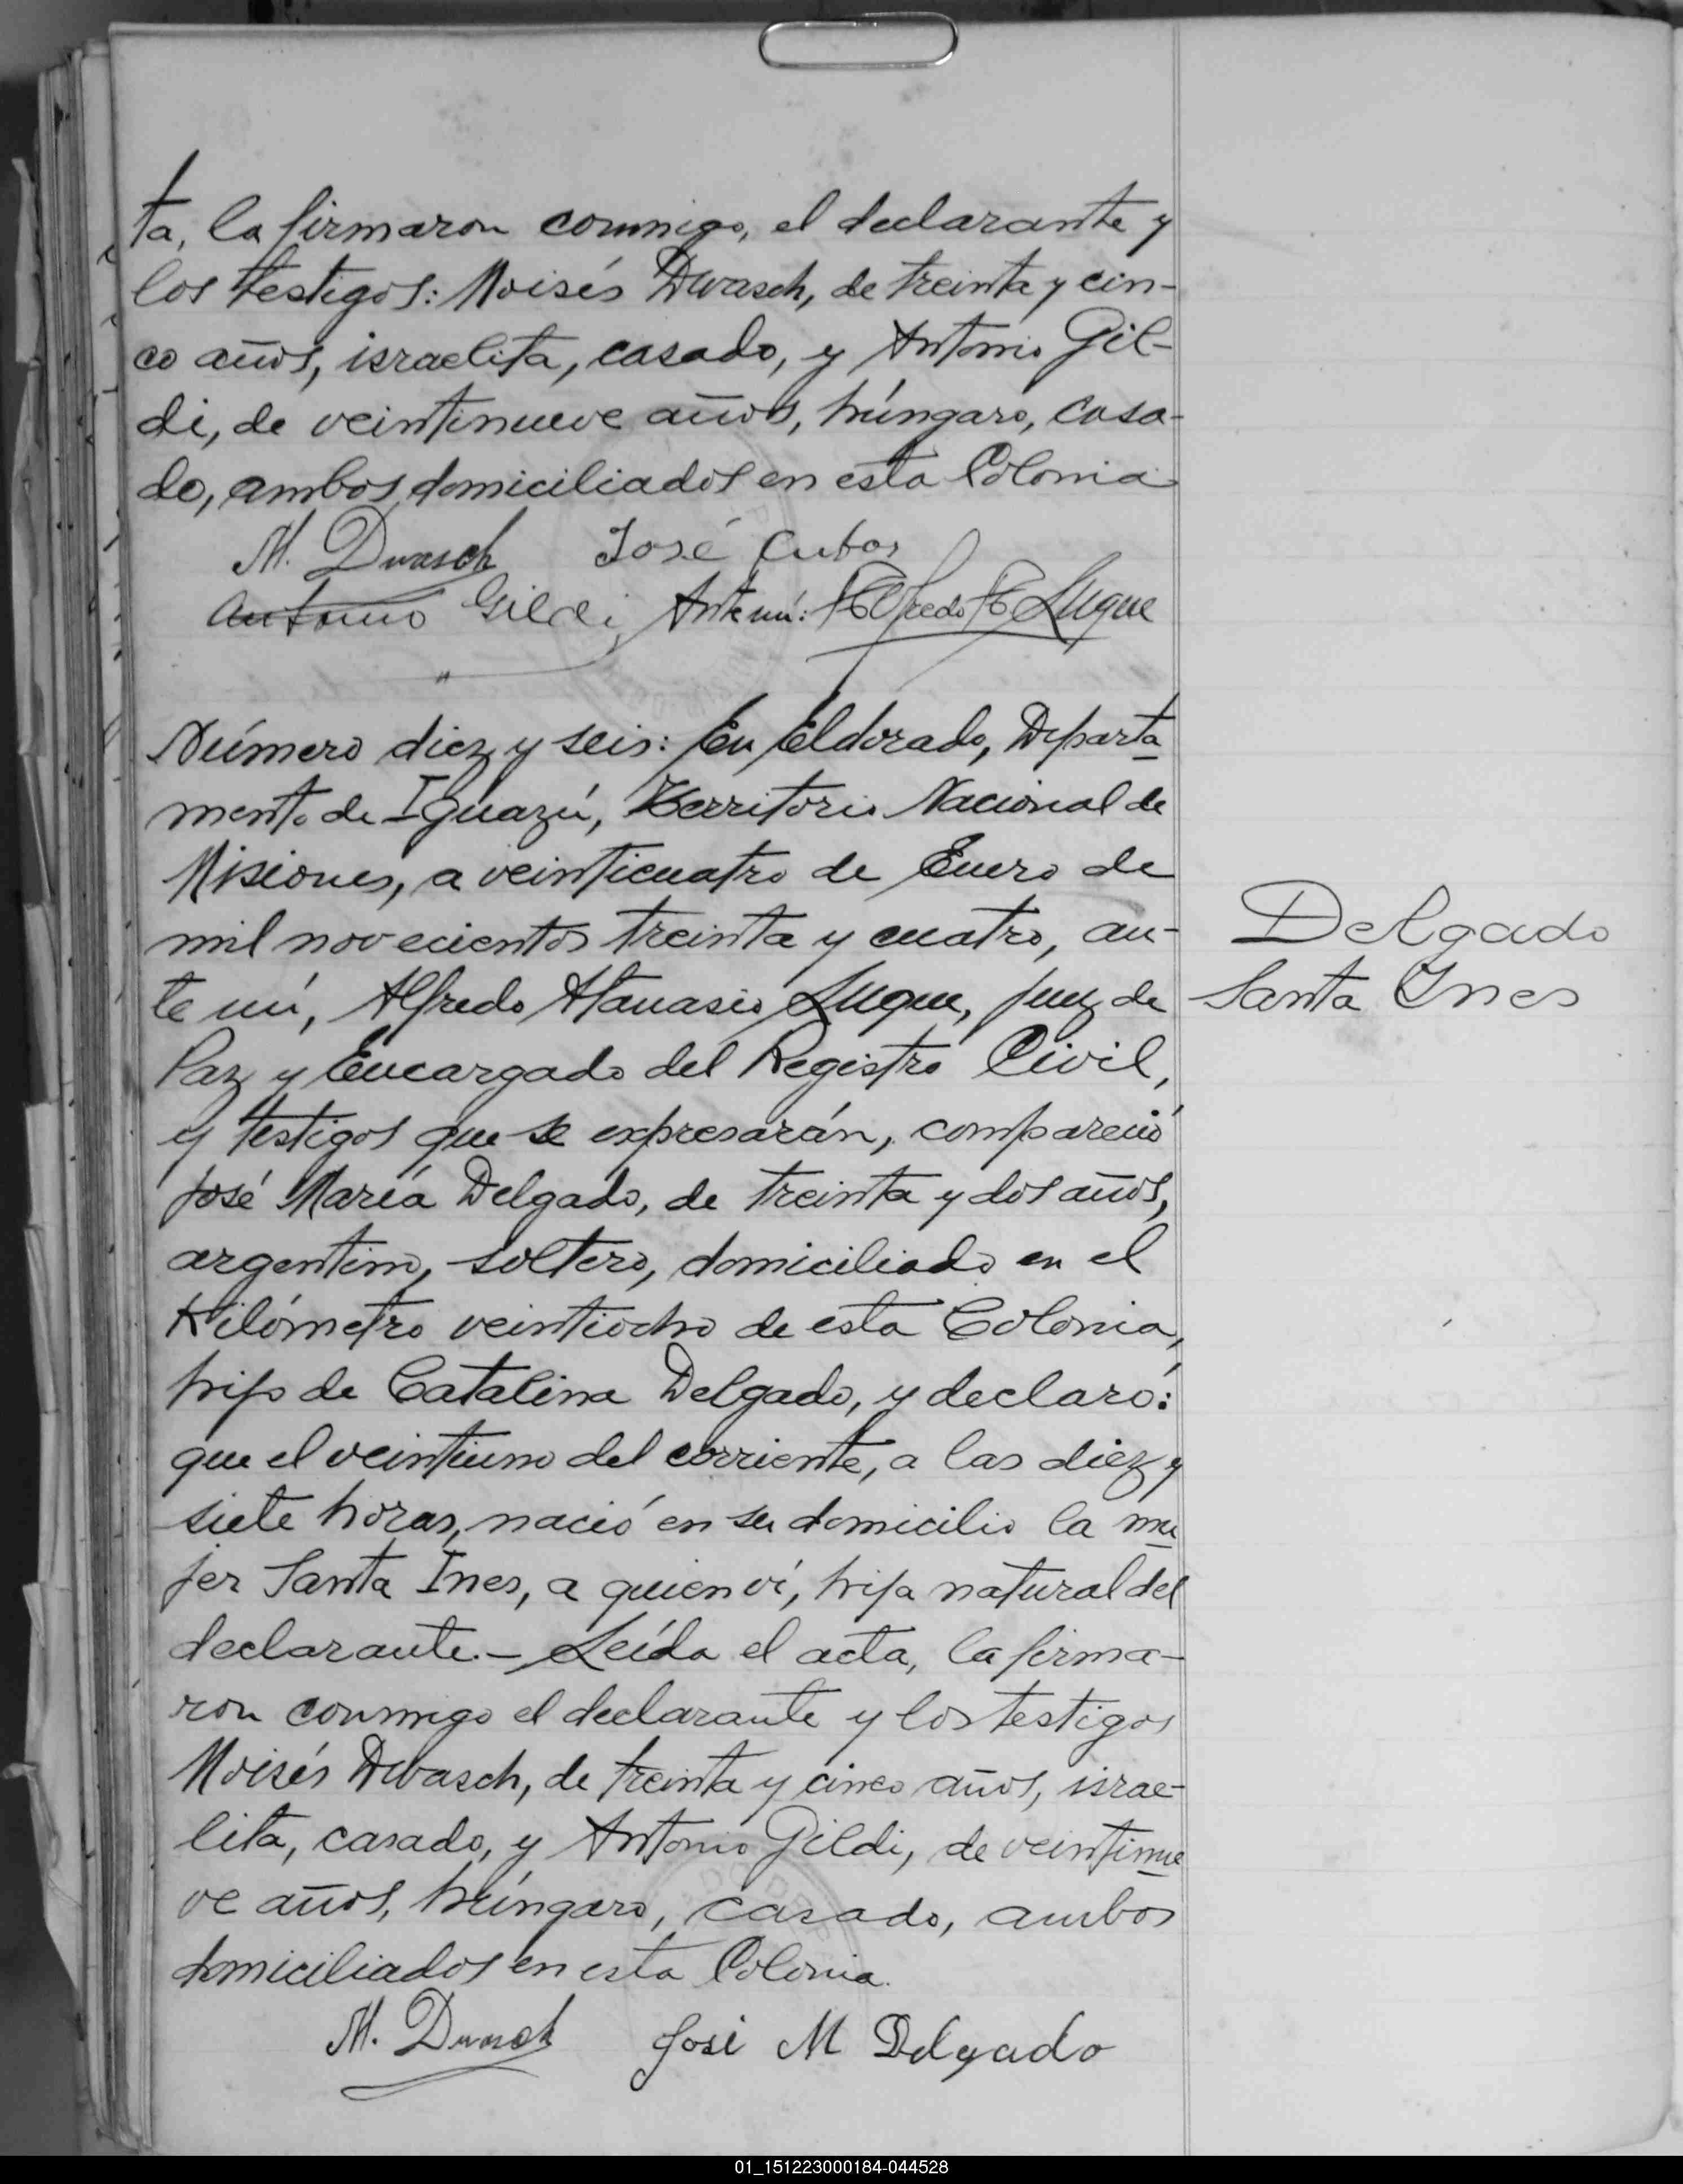 ta, la firmaron conmigo, el declarante y
los testigos: Moisés Dwasch, de treinta y cin-
co años, israelita, casado, y Antonio Gil-
di, de veintinueve años, húngaro, casa-
do, ambos domiciliados en esta Colonia
M. Dwasch José Cubas
Antonio Gildi Ante mí: Alfredo A Luque
Número diez y seis: En Eldorado, Departa
mento de Iguazú, Territorio Nacional de
Misiones, a veinticuatro de Enero de
mil novecientos treinta y cuatro, an-
te mí, Alfredo Atanasio Luque, Juez de
Paz y Encargado del Registro Civil,
y testigos que se expresarán, compareció
José María Delgado, de treinta y dos años,
argentino, soltero, domiciliado en el
Kilómetro veintiocho de esta Colonia,
hijo de Catalina Delgado, y declaró:
que el veintiuno del corriente, a las diez y
siete horas, nació en su domicilio la mu
jer Santa Ines, a quien ví, hija natural del
declarante.- Leída el acta, la firma-
ron conmigo el declarante y los testigos
Moisés Dwasch, de treinta y cinco años, israe-
lita, casado, y Antonio Gildi, de veintinue
ve años, húngaro, casado, ambos
domiciliados en esta Colonia.
M. Dwasch José M Delgado
Delgado
Santa Ines
01_151223000184-044528